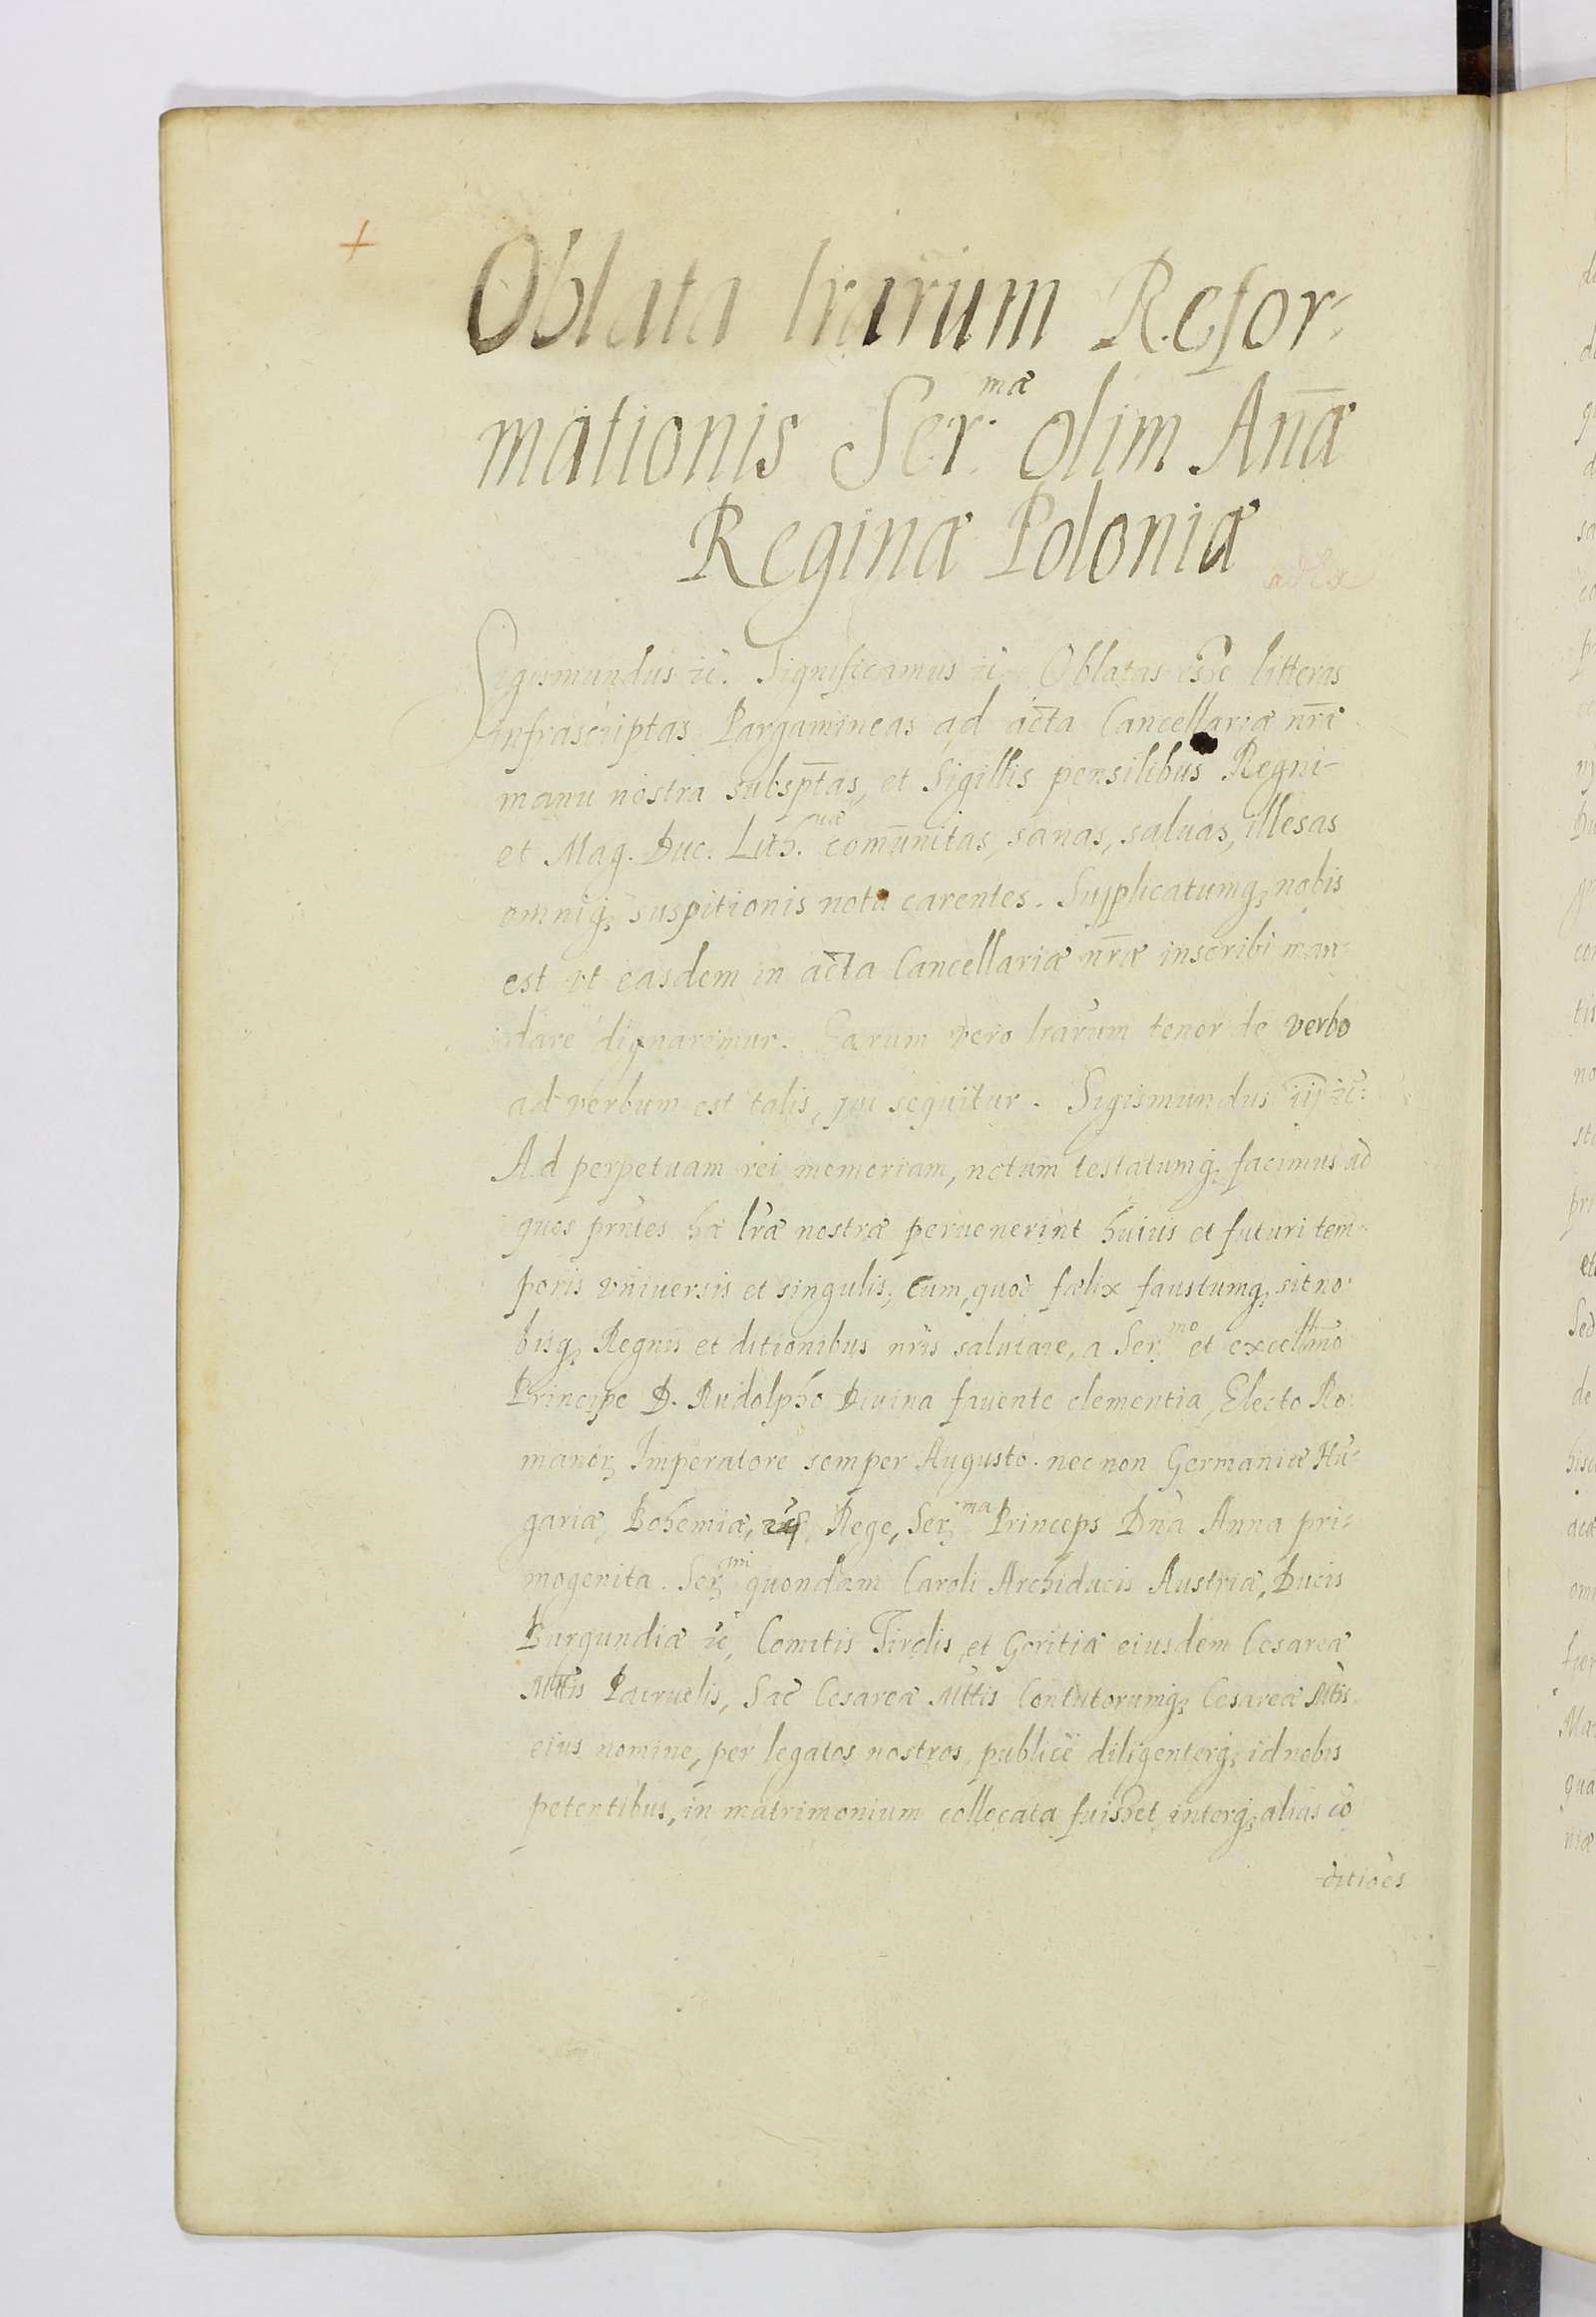 Oblata lrarum Refor-
mationis Ser.mæ olim Annæ
Reginæ Poloniæ
Sigismundus etc. Significamus etc. Oblatas esse litteras
infrascriptas Pargamineas ad acta Cancellariæ nræ
manu nostra subsptas, et Sigillis pensilibus Regni
et Mag. Duc. Lith.uæ comunitas, sanas, saluas, illesas
omniq; suspitionis nota carentes. Supplicatumq; nobis
est vt easdem in acta Cancellariæ nræ inscribi man-
dare dignaremur. Earum vero lrarum tenor de verbo
ad verbum est talis, qui sequitur. Sigismundus iij etc:
Ad perpetuam rei memoriam, notum testatumq; facimus ad
quos pntes hæ lræ nostræ peruenerint huius et futuri tem-
poris vniuersis et singulis, Cum, quod fælix faustumq; sit no-
bisq; Regnis et ditionibus nris salutare, a Ser.mo et excellmo
Principe D. Rudolpho Diuina fauente clementia, Electo Ro-
manor; Imperatore semper Augusto. nec non Germaniæ Hu-
gariæ, Bohemiæ, etc Rege, Ser.ma Princeps Dna Anna pri-
mogenita Ser.mi quondam Caroli Archiducis Austriæ, Ducis
Burgundiæ etc, Comitis Tirolis, et Goritiæ eiusdem Cesareæ
Mttis Patruelis, Sac Cesareæ Mttis Contutorumq; Cesareæ Mtis
eius nomine, per legatos nostros publice diligenterq; id nobis
petentibus, in matrimonium collocata fuisset, interq; alias co
ditioes